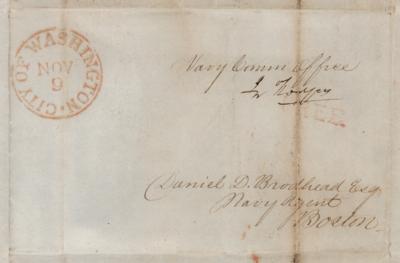 CITY OF WASHINGTON
NOV
9
Navy Comm Office
Jn Rodgers
Daniel D. Brodhead Esq
Navy Agent
Boston